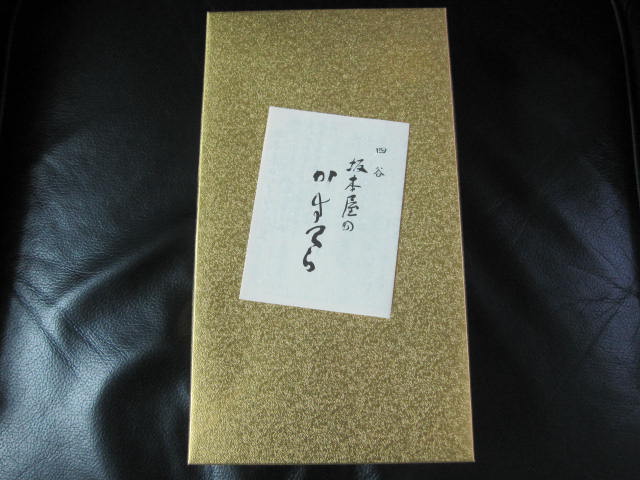 四谷
坂本屋の
かすてら